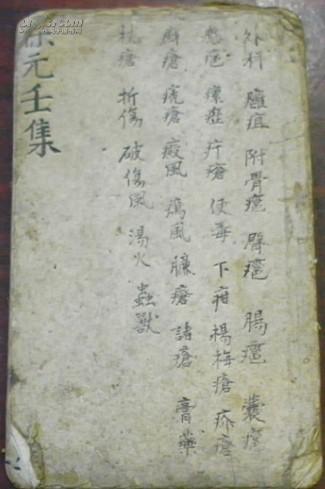 外科 癰疽 附骨癰 臀癰 腸癰 囊癰
懸癰 瘰癧 疔瘡 便毒 下疳 楊梅瘡 疥瘡
癬瘡 癜風 癘風 臁瘡 諸瘡 膏藥
杖瘡 折傷 破傷風 湯火 蟲獸
保元壬集